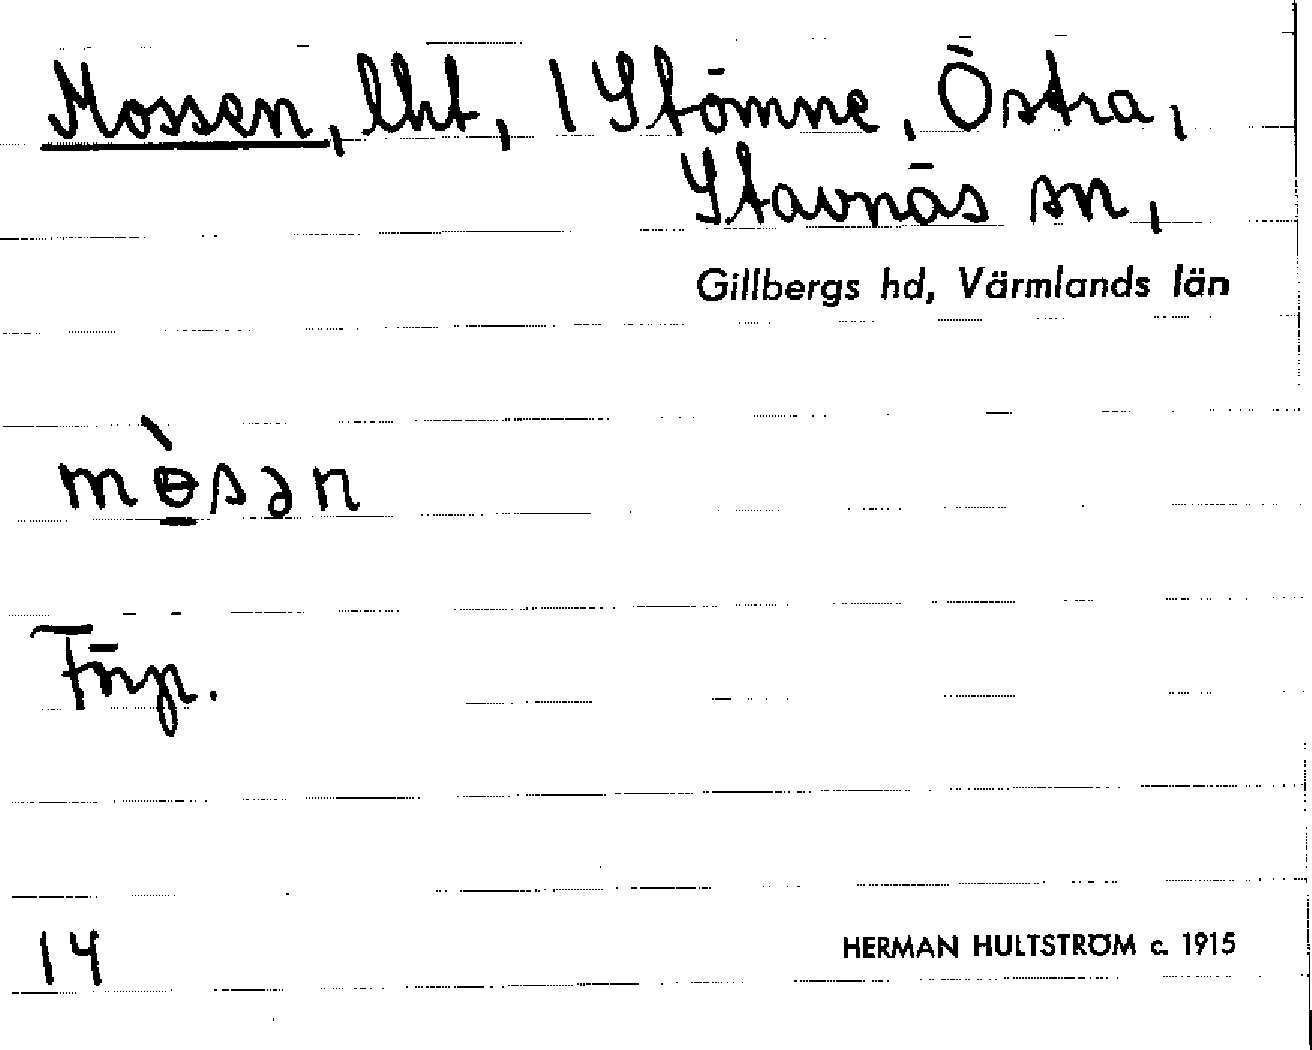 Mossen, lht, 1 Stömne, Östra,
Stavnäs sn,
Gillbergs hd, Värmlands län
mɵ̱̀sən
Förp.
14
HERMAN HULTSTRÖM c. 1915